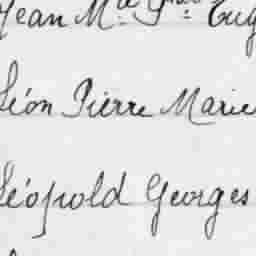 Jean M.
Léon Pierre Marie
Léopold Georges